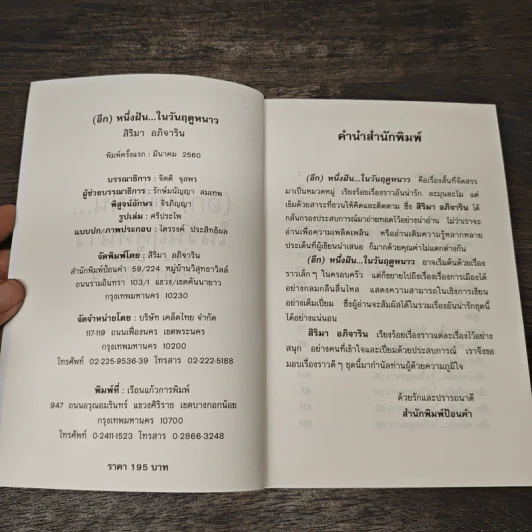 (อีก) หนึ่งฝัน...ในวันฤดูหนาว
สิริมา อภิจาริน
พิมพ์ครั้งแรก : มีนาคม 2560
บรรณาธิการ : จิตติ จุลพร
ผู้ช่วยบรรณาธิการ : รักษ์มนัญญา สมเทพ
พิสูจน์อักษร : จิรภิญญา
รูปเล่ม : ศรีประไพ
แบบปก/ภาพประกอบ : ไตรรงค์ ประสิทธิผล
จัดพิมพ์โดย : สิริมา อภิจาริน
สำนักพิมพ์ป้อนคำ 59/224 หมู่บ้านวิสุทธาวิลล์
ถนนรามอินทรา 103/1 แขวง/เขตคันนายาว
กรุงเทพมหานคร 10230
จัดจำหน่ายโดย : บริษัท เคล็ดไทย จำกัด
117-119 ถนนเฟื่องนคร เขตพระนคร
กรุงเทพมหานคร 10200
โทรศัพท์ 02-225-9536-39 โทรสาร 02-222-5188
พิมพ์ที่ : เรือนแก้วการพิมพ์
947 ถนนอรุณอมรินทร์ แขวงศิริราช เขตบางกอกน้อย
กรุงเทพมหานคร 10700
โทรศัพท์ 0-2411-1523 โทรสาร 0-2866-3248
ราคา 195 บาท
คำนำสำนักพิมพ์
(อีก) หนึ่งฝัน...ในวันฤดูหนาว คือเรื่องสั้นที่จัดสรร
มาเป็นหมวดหมู่ เรียงร้อยเรื่องราวอันน่ารัก ละมุนละไม แต่
เข้มด้วยสาระที่ชวนให้คิดและติดตาม ซึ่ง สิริมา อภิจาริน ได้
กลั่นกรองประสบการณ์มาถ่ายทอดไว้อย่างน่าอ่าน ไม่ว่าเราจะ
อ่านเพื่อความเพลิดเพลิน หรืออ่านเติมความรู้หลากหลาย
ประเด็นที่ผู้เขียนนำเสนอ ก็มากด้วยคุณค่าไม่แตกต่างกัน
(อีก) หนึ่งฝัน...ในวันฤดูหนาว อาจเริ่มต้นด้วยเรื่อง
ราวเล็กๆ ในครอบครัว แต่ก็ขยายไปถึงเรื่องเรื่องการเมืองได้
อย่างกลมกลืนลื่นไหล แสดงความสามารถในเชิงการเขียน
อย่างเต็มเปี่ยม ซึ่งผู้อ่านจะสัมผัสได้ในรวมเรื่องอันน่ารักชุดนี้
ได้อย่างแน่นอน
สิริมา อภิจาริน เรียงร้อยเรื่องราวแต่ละเรื่องไว้อย่าง
สนุก อย่างคนที่เข้าใจและเปี่ยมด้วยประสบการณ์ เราจึงขอ
มอบเรื่องราวดีๆ ชุดนี้มากำนัลท่านผู้ด้วยความภูมิใจ
ด้วยรักและปรารถนาดี
สำนักพิมพ์ป้อนคำ